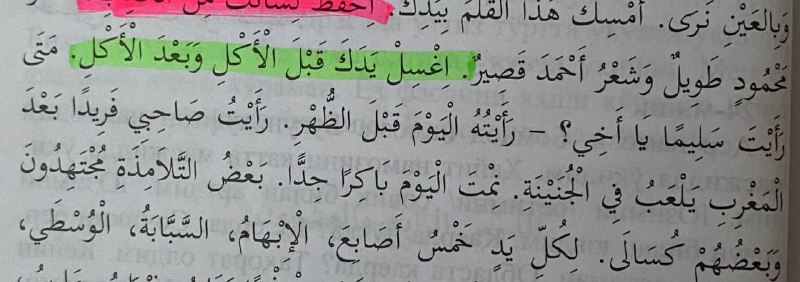 وَبِالْعَيْنِ نَرَى. أَمْسِكْ هَذَا الْقَلَمَ بِيَدِكَ. اِحْفَظْ لِسَانَكَ مِنَ
مَحْمُودٍ طَوِيلٌ وَشَعْرُ أَحْمَدَ قَصِيرٌ. اِغْسِلْ يَدَكَ قَبْلَ الْأَكْلِ وَبَعْدَ الْأَكْلِ. مَتَى
رَأَيْتَ سَلِيمًا يَا أَخِي؟ – رَأَيْتُهُ الْيَوْمَ قَبْلَ الظُّهْرِ. رَأَيْتُ صَاحِبِي فَرِيدًا بَعْدَ
الْمَغْرِبِ يَلْعَبُ فِي الْجُنَيْنَةِ. نِمْتَ الْيَوْمَ بَاكِرًا جِدًّا. بَعْضُ التَّلَامِذَةِ مُجْتَهِدُونَ
وَبَعْضُهُمْ كُسَالَى. لِكُلِّ يَدٍ خَمْسُ أَصَابِعَ، الْإِبْهَامُ، السَّبَّابَةُ، الْوُسْطَي،